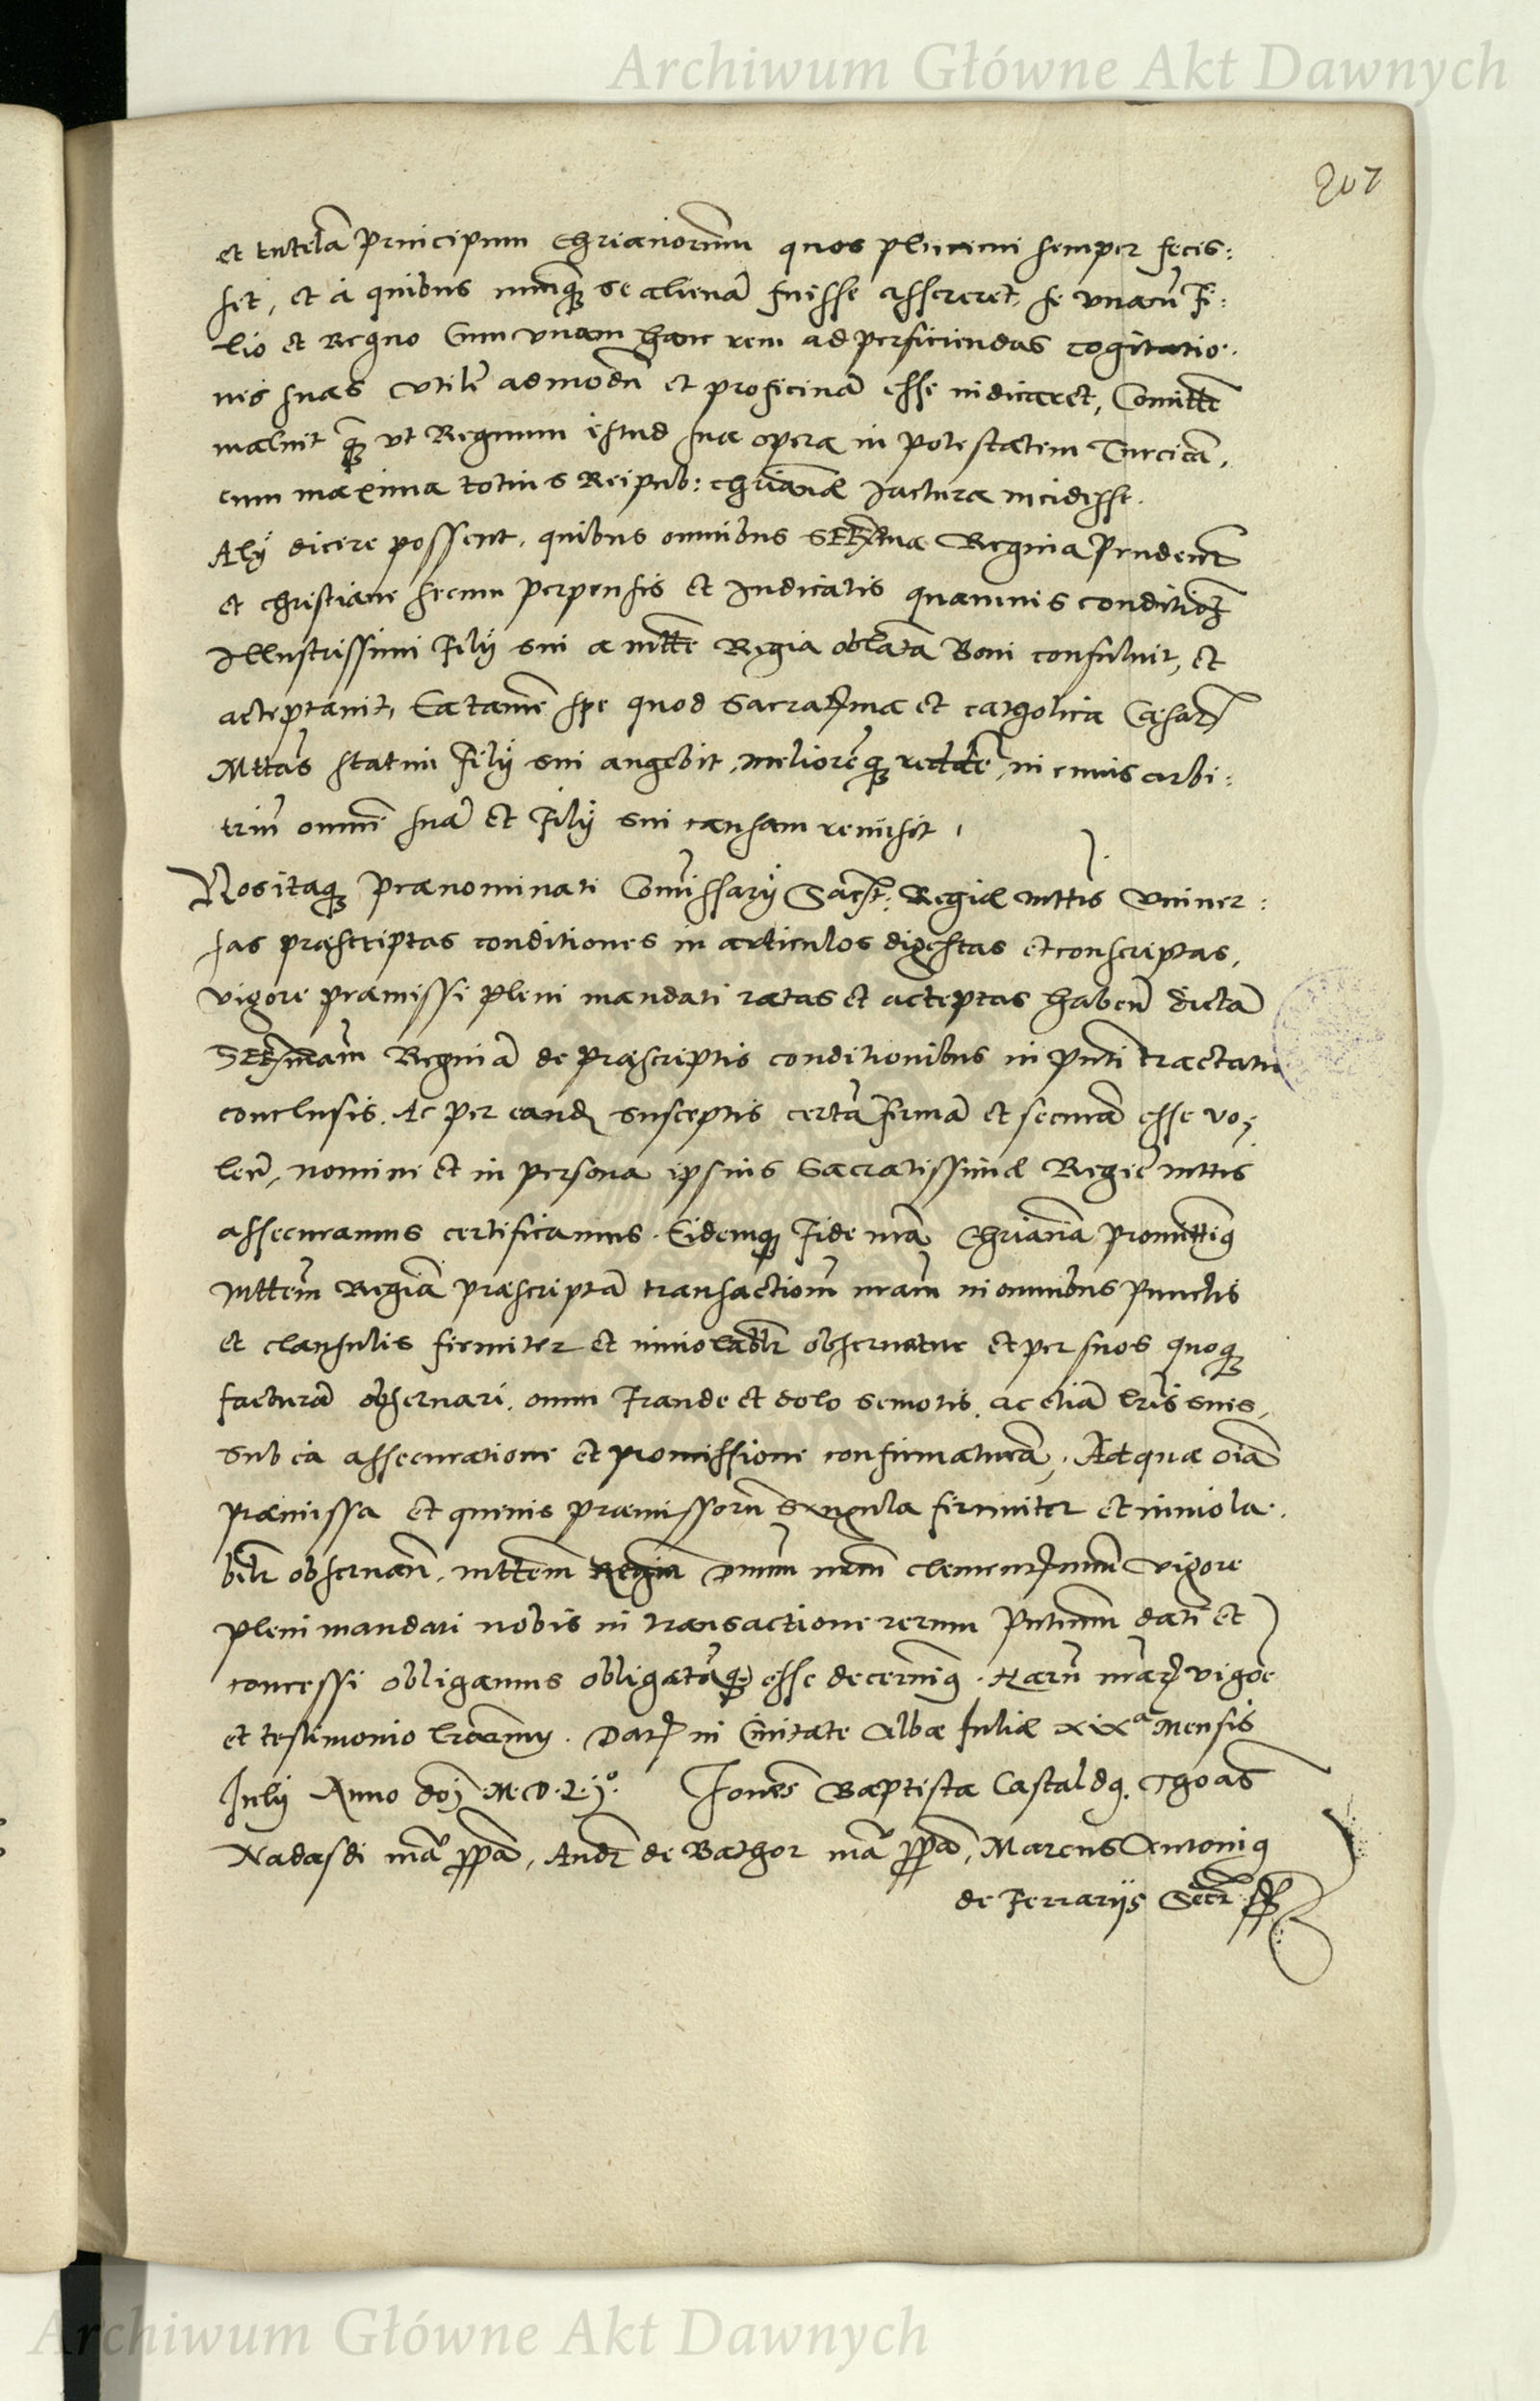 Archiwum Główne Akt Dawnych
207
et tutelã Principum Chrianorum quos plurimi semper fecis:
set, et à quibus nunq̃ se alienã fuisse assereret, se unacũ Fi:
lio et Regno Cum unam hanc rem ad perficiendas cogitatio.
nes suas utilẽ admodũ et proficuã esse iudicaret, Comitt̃e
maluit q̃ ut Regnum istud sua opera in potestatem Turcicã,
cum maxima totius Reipub: chrianæ Iactura incidisset.
Alÿ dicere possent, quibus omnibus SERma Regina Prudent̃
et christiane secum perpensis et Iudicatis quamuis condition̄
Illustrissimi Filÿ sui a mtt̃e Regia oblatã Boni consuluit, et
acceptauit, Ea tamẽ spe quod Sacratma et catholica Cesar̃
Mttãs statum Filÿ sui augebit, meliorẽq; redd̃e, in cuius arbi:
triũ omnẽ suã et Filÿ sui causam remisit.
Nos itaq; prænominati Com̃issarÿ Sacrat: Regiæ mttis uniuer:
sas præscriptas conditiones in articulos digestas et conscriptas,
vigore præmissi pleni mandati ratas et acceptas habeñ dictã
SERmam̃ Reginã de præscriptis conditionibus in pñti tractatu
conclusis. Ac per eand̃ susceptis certã firmã et securã esse uo;
leñ, nomine et in persona ipsius Sacratissimæ Regiẽ mttis
assecuramus certificamus. Eidemq; Fide nrã Chrianã promittimꝰ
Mttem̃ Regiã præscriptã transactionẽ nram̃ in omnibus punctis
et clausulis firmiter et inuiolabłr obseruatur et per suos quoq;
facturã obseruari. omni Fraude et dolo semotis. ac etiã lris̃ suis,
sub ea assecuratione et promissione confirmaturã. Ad quæ oĩa
præmissa et queuis præmissorũ syngula firmiter et inuiola.
bilr̃ obseruañ. mttem̃ Regiã Dnum̃ nrm̃ clementmum vigore
pleni mandati nobis in transactione rerum Pñtium dati et
concessi obligamus obligatũq; esse decernimꝰ. Harũ nrãꝝ vigoẽ
et testimonio lrarum̃. Dat̃ in Ciuitate Albæ Iuliæ xixᵃ Mensis
Iulÿ Anno dnj̃ .M.D.L.jº. Ioañes Baptista Castaldꝰ. Thoãs
Nadasdi mañ pp̃a, And̃r de Bathor mañ pp̃a, Marcus Antoniꝰ
de Ferrariis Secr̃ pp̃
Archiwum Główne Akt Dawnych